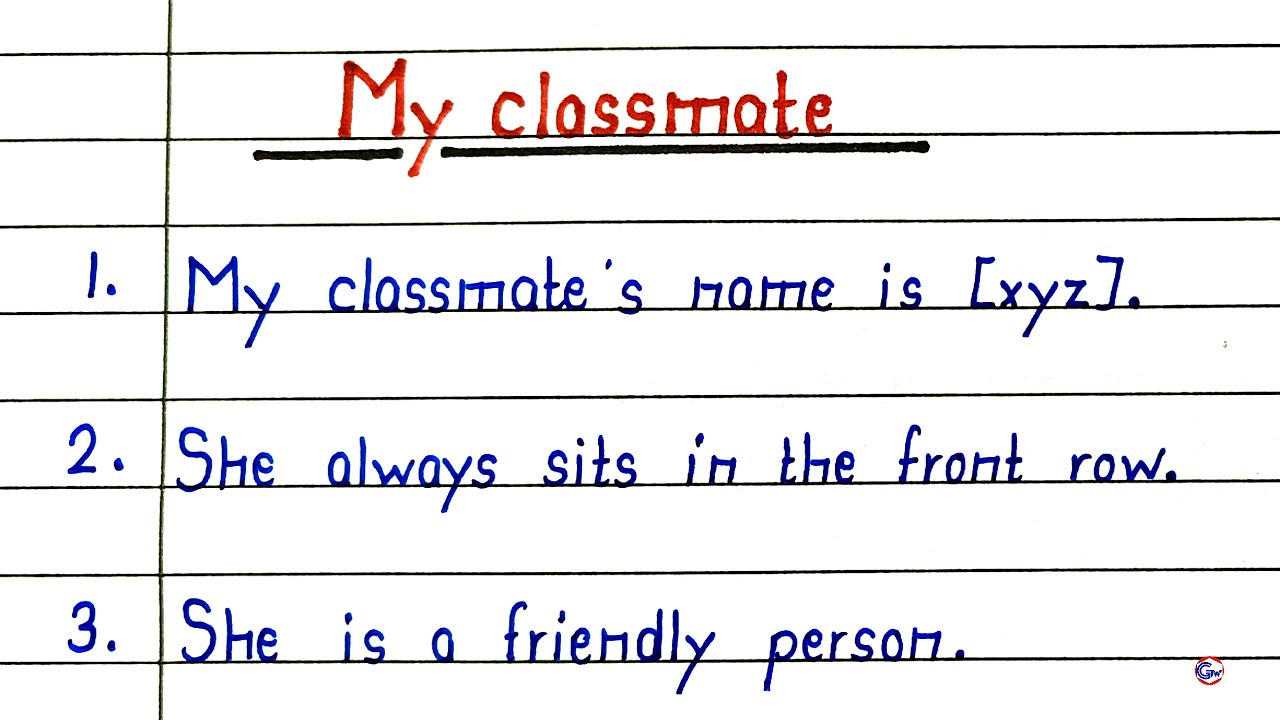 My classmate
1. My classmate's name is [xyz].
2. She always sits in the front row.
3. She is a friendly person.
GTW